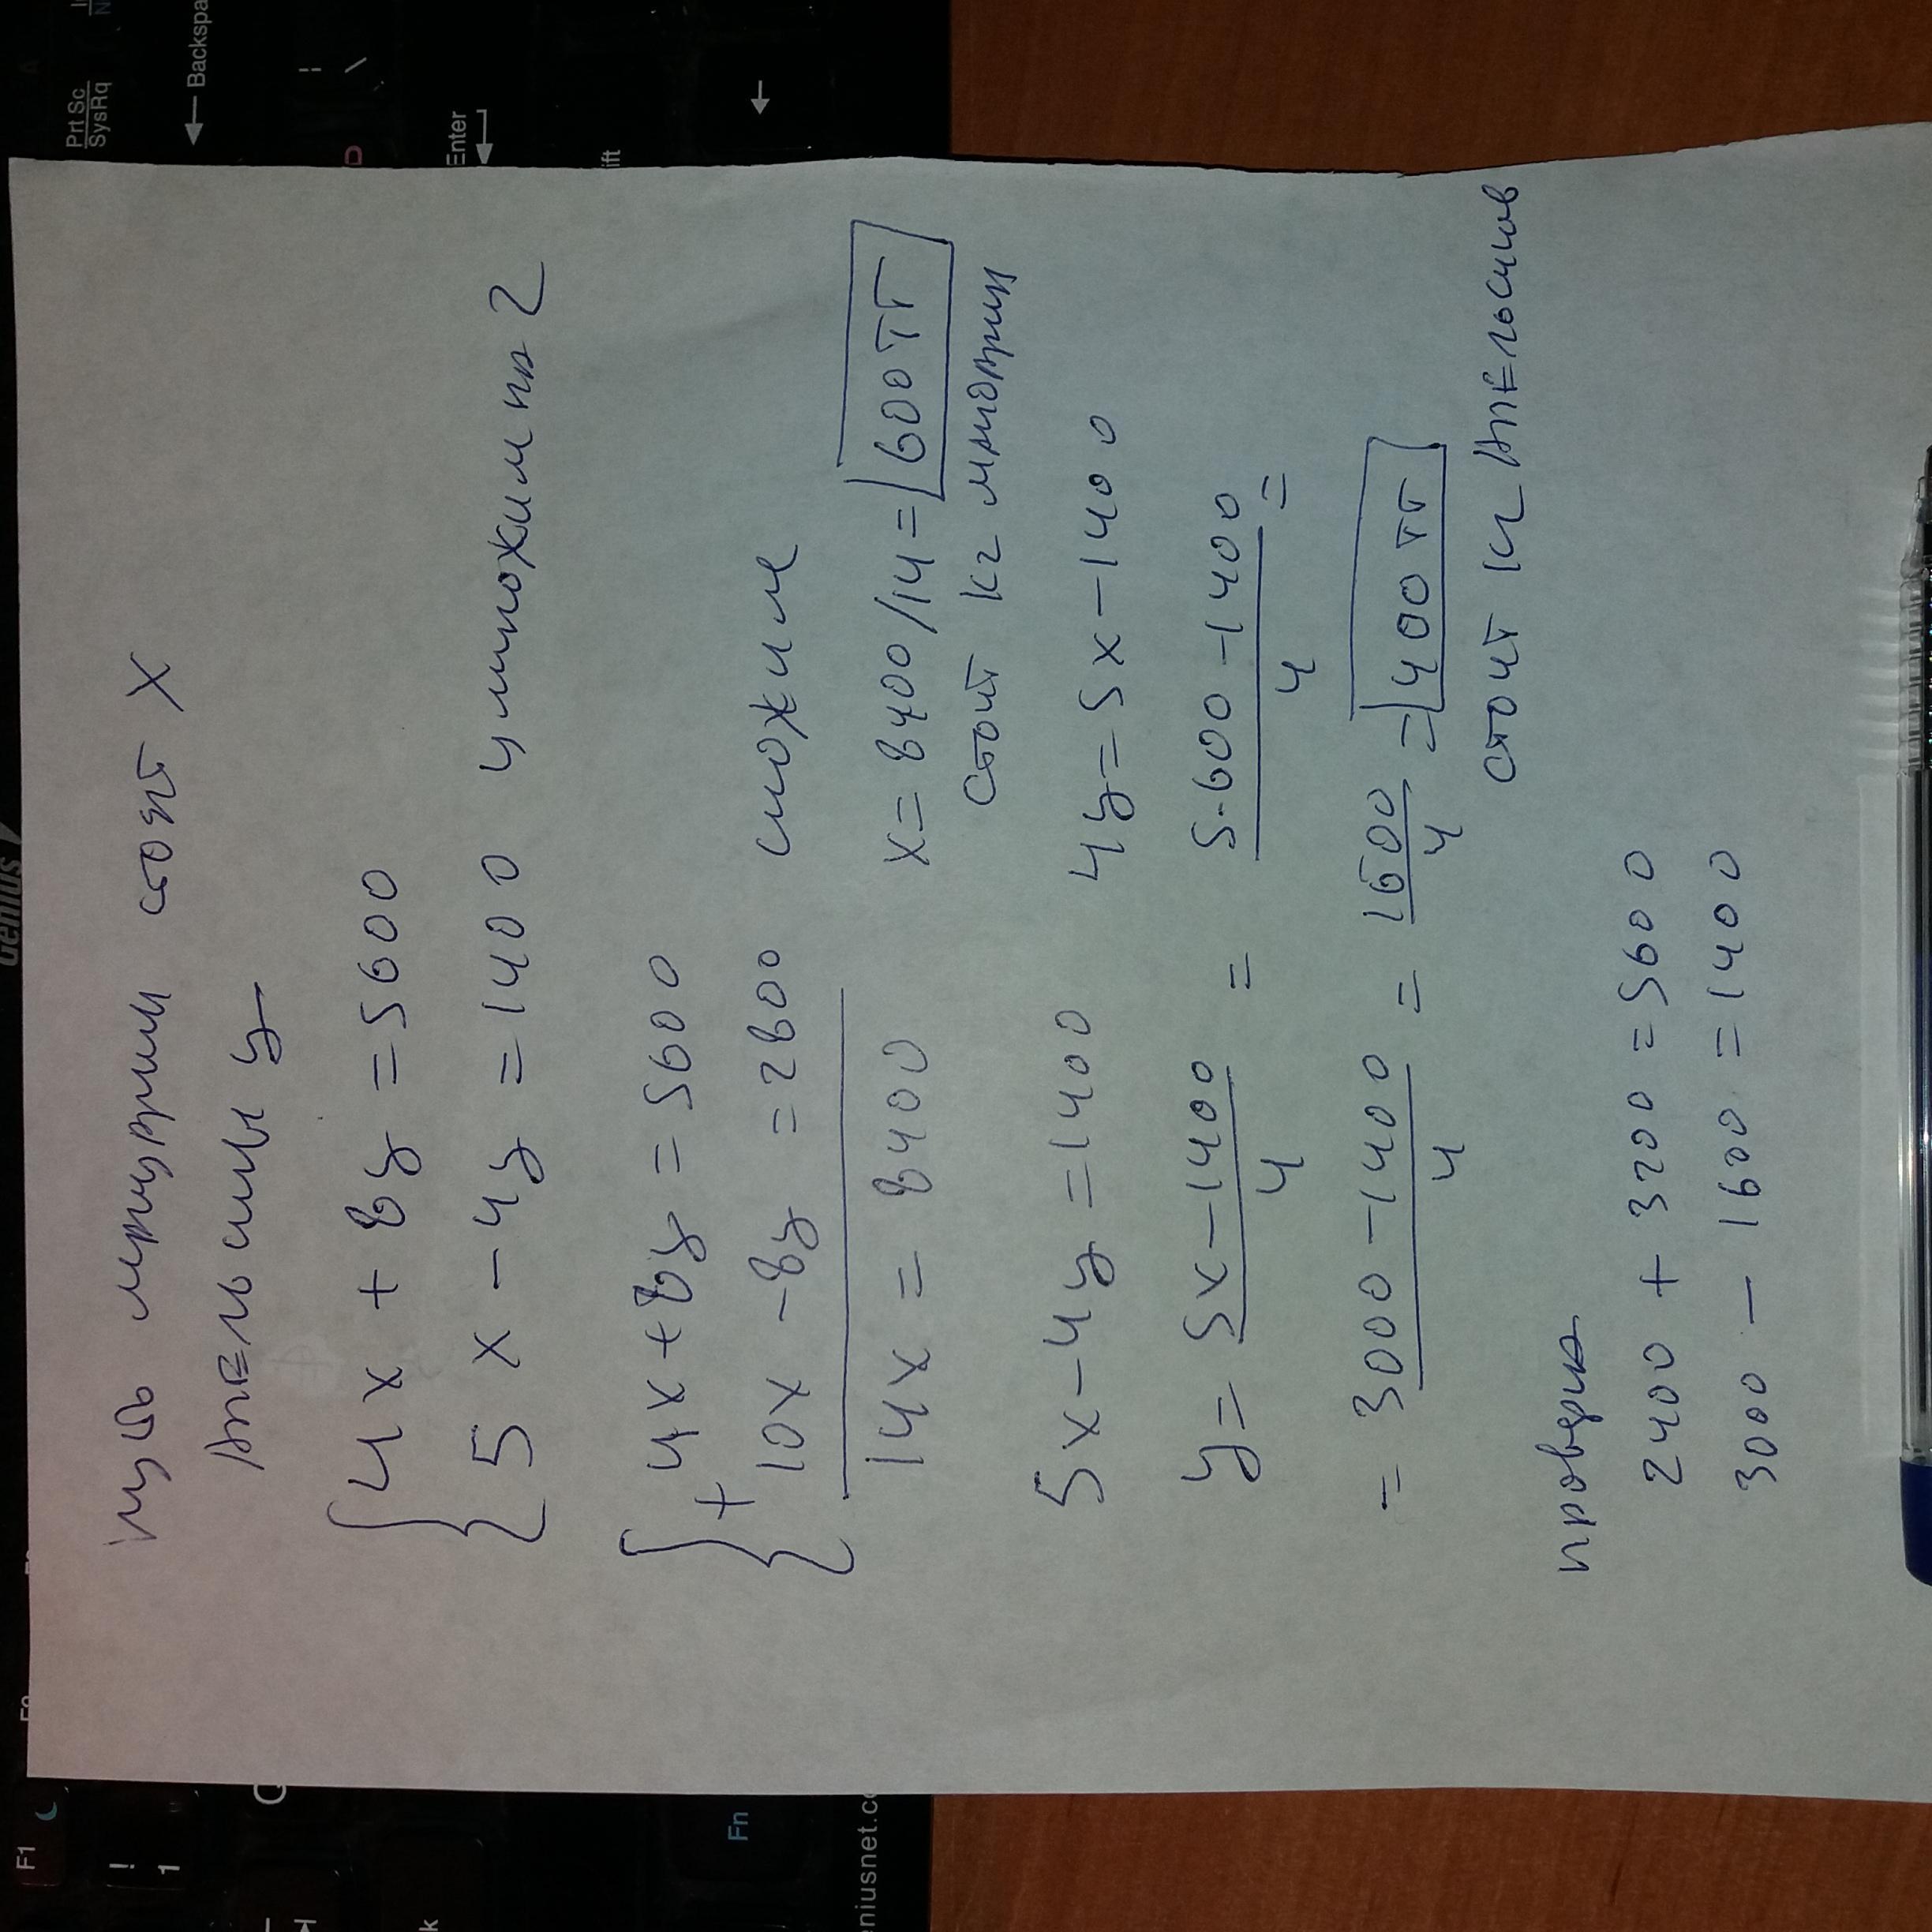 пусть мандарины стоят x
апельсины y
4x + 8y = 5600
5x - 4y = 1400 умножим на 2
4x + 8y = 5600
+
10x - 8y = 2800 сложим
14x = 8400 x = 8400/14 = 600 тг
стоит кг мандарин
5x - 4y = 1400 4y = 5x - 1400
y = 5x - 1400 / 4 = 5·600 - 1400 / 4 =
= 3000 - 1400 / 4 = 1600 / 4 = 400 тг
стоит кг апельсинов
проверка
2400 + 3200 = 5600
3000 - 1600 = 1400
Genius
Prt Sc
SysRq
Backspa
Enter
ift
F1
!
1
Fn
k
eniusnet.c